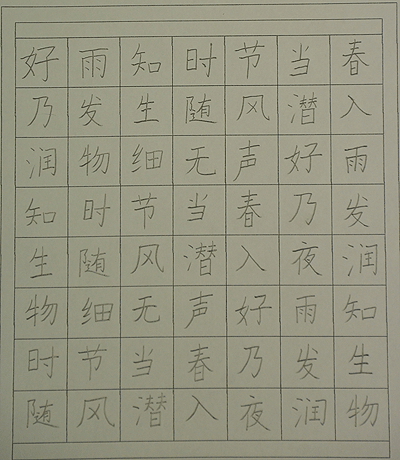 好雨知时节当春
乃发生随风潜入
润物细无声好雨
知时节当春乃发
生随风潜入夜润
物细无声好雨知
时节当春乃发生
随风潜入夜润物